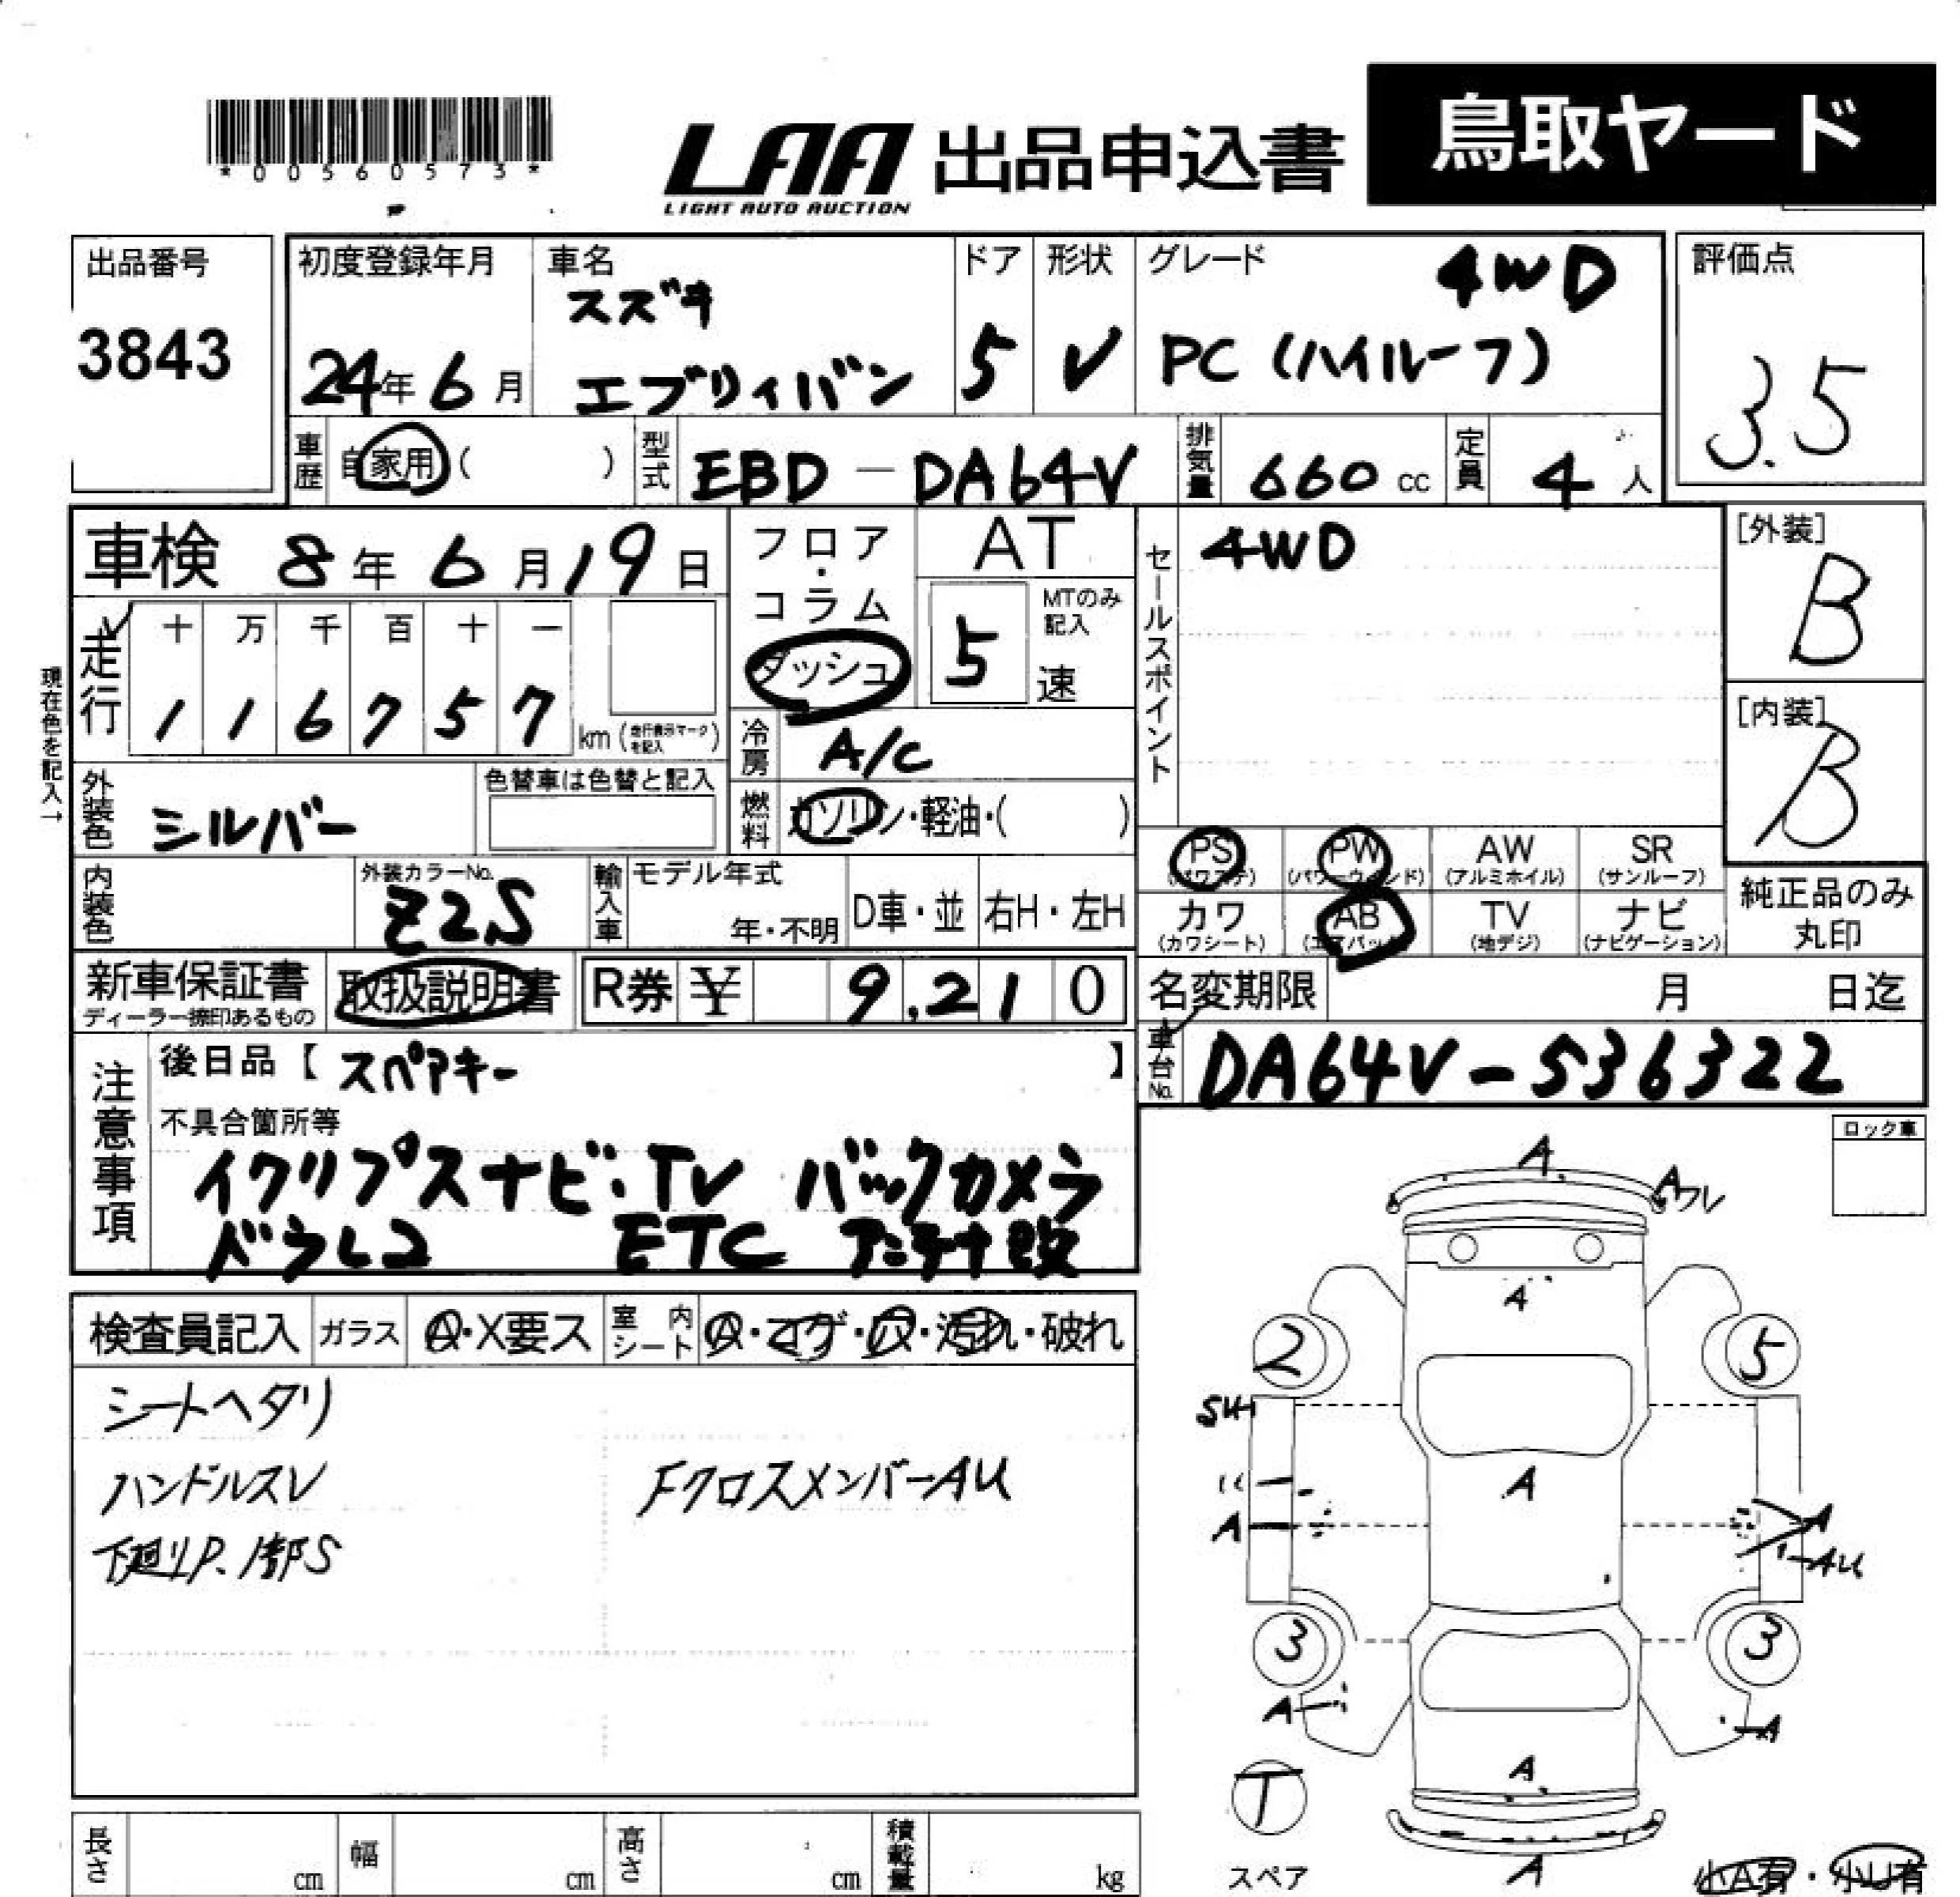 *00560573*
LAA 出品申込書 鳥取ヤード
LIGHT AUTO AUCTION
出品番号
3843
初度登録年月
24年 6月
車名
スズキ
エブリィバン
ドア
5
形状
V
グレード
4WD
PC (ハイルーフ)
評価点
3.5
車歴 自家用 ( )
型式 EBD-DA64V
排気量 660 cc
定員 4 人
車検 8年 6月 19日
走行 十 万 千 百 十 一
1 1 6 7 5 7 km (走行表示マークを記入)
現在色を記入→
フロア・コラム
ダッシュ
AT
5 速
MTのみ記入
冷房 A/C
燃料 ガソリン・軽油・( )
セールスポイント
4WD
[外装]
B
[内装]
B
外装色 シルバー
色替車は色替と記入
内装色
外装カラーNo.
Z2S
輸入車
モデル年式
年・不明
D車・並 右H・左H
PS (パワステ)
PW (パワーウインド)
AW (アルミホイル)
SR (サンルーフ)
カワ (カワシート)
AB (エアバック)
TV (地デジ)
ナビ (ナビゲーション)
純正品のみ
丸印
新車保証書
ディーラー捺印あるもの
取扱説明書
R券 ¥ 9,210
名変期限 月 日迄
車台No. DA64V-536322
注意事項
後日品【 スペアキー 】
不具合箇所等
イクリプスナビ・TV バックカメラ
ドラレコ ETC アンテナ改
ロック車
検査員記入 ガラス A・X要ス 室内シート A・コゲ・穴・汚れ・破れ
シートヘタリ
ハンドルスレ
Fクロスメンバー AU
下廻りP、1部S
A
A ワレ
A
2
5
SU
A
A
A
AU
3
3
A
A
A
T
スペア
A
小A有・小U有
長さ cm 幅 cm 高さ cm 積載量 kg